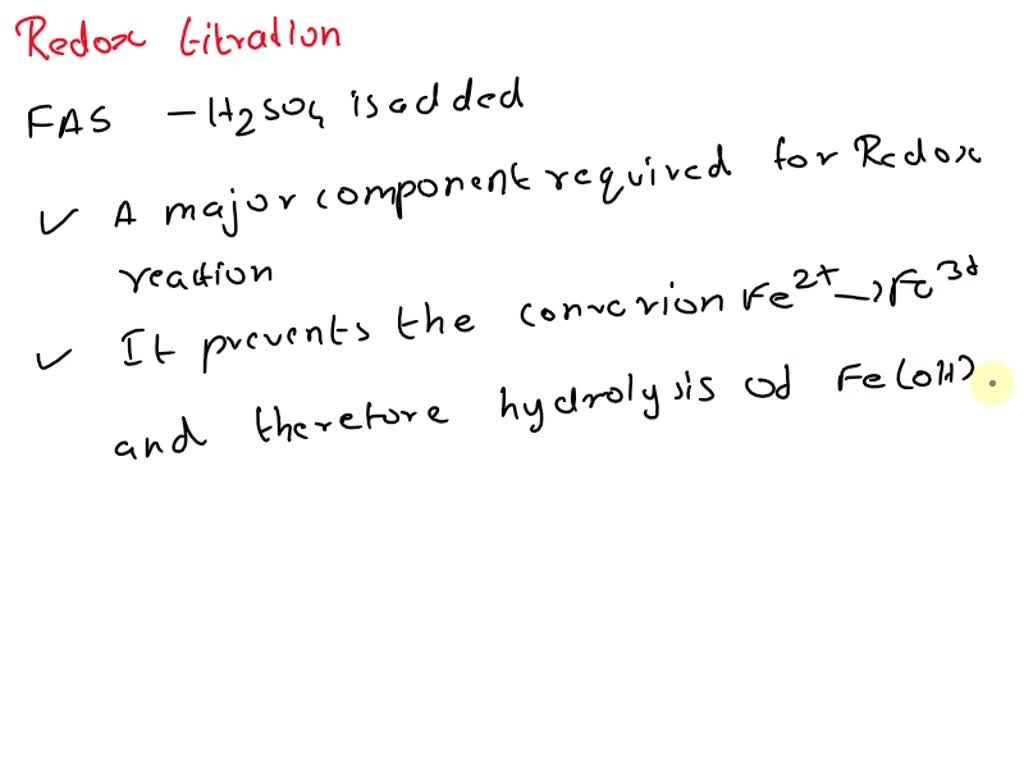 Redox titration
FAS - H2SO4 is added
✓ A major component required for Redox
reaction
✓ It prevents the converion Fe2+ → Fe3+
and therefore hydrolysis of Fe(OH)